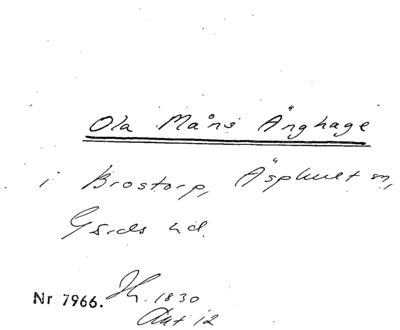 Ola Måns Änghage
i Brostorp, Äsphult sn,
Gärds hd.
Nr 7966. Jh. 1830
Akt 12